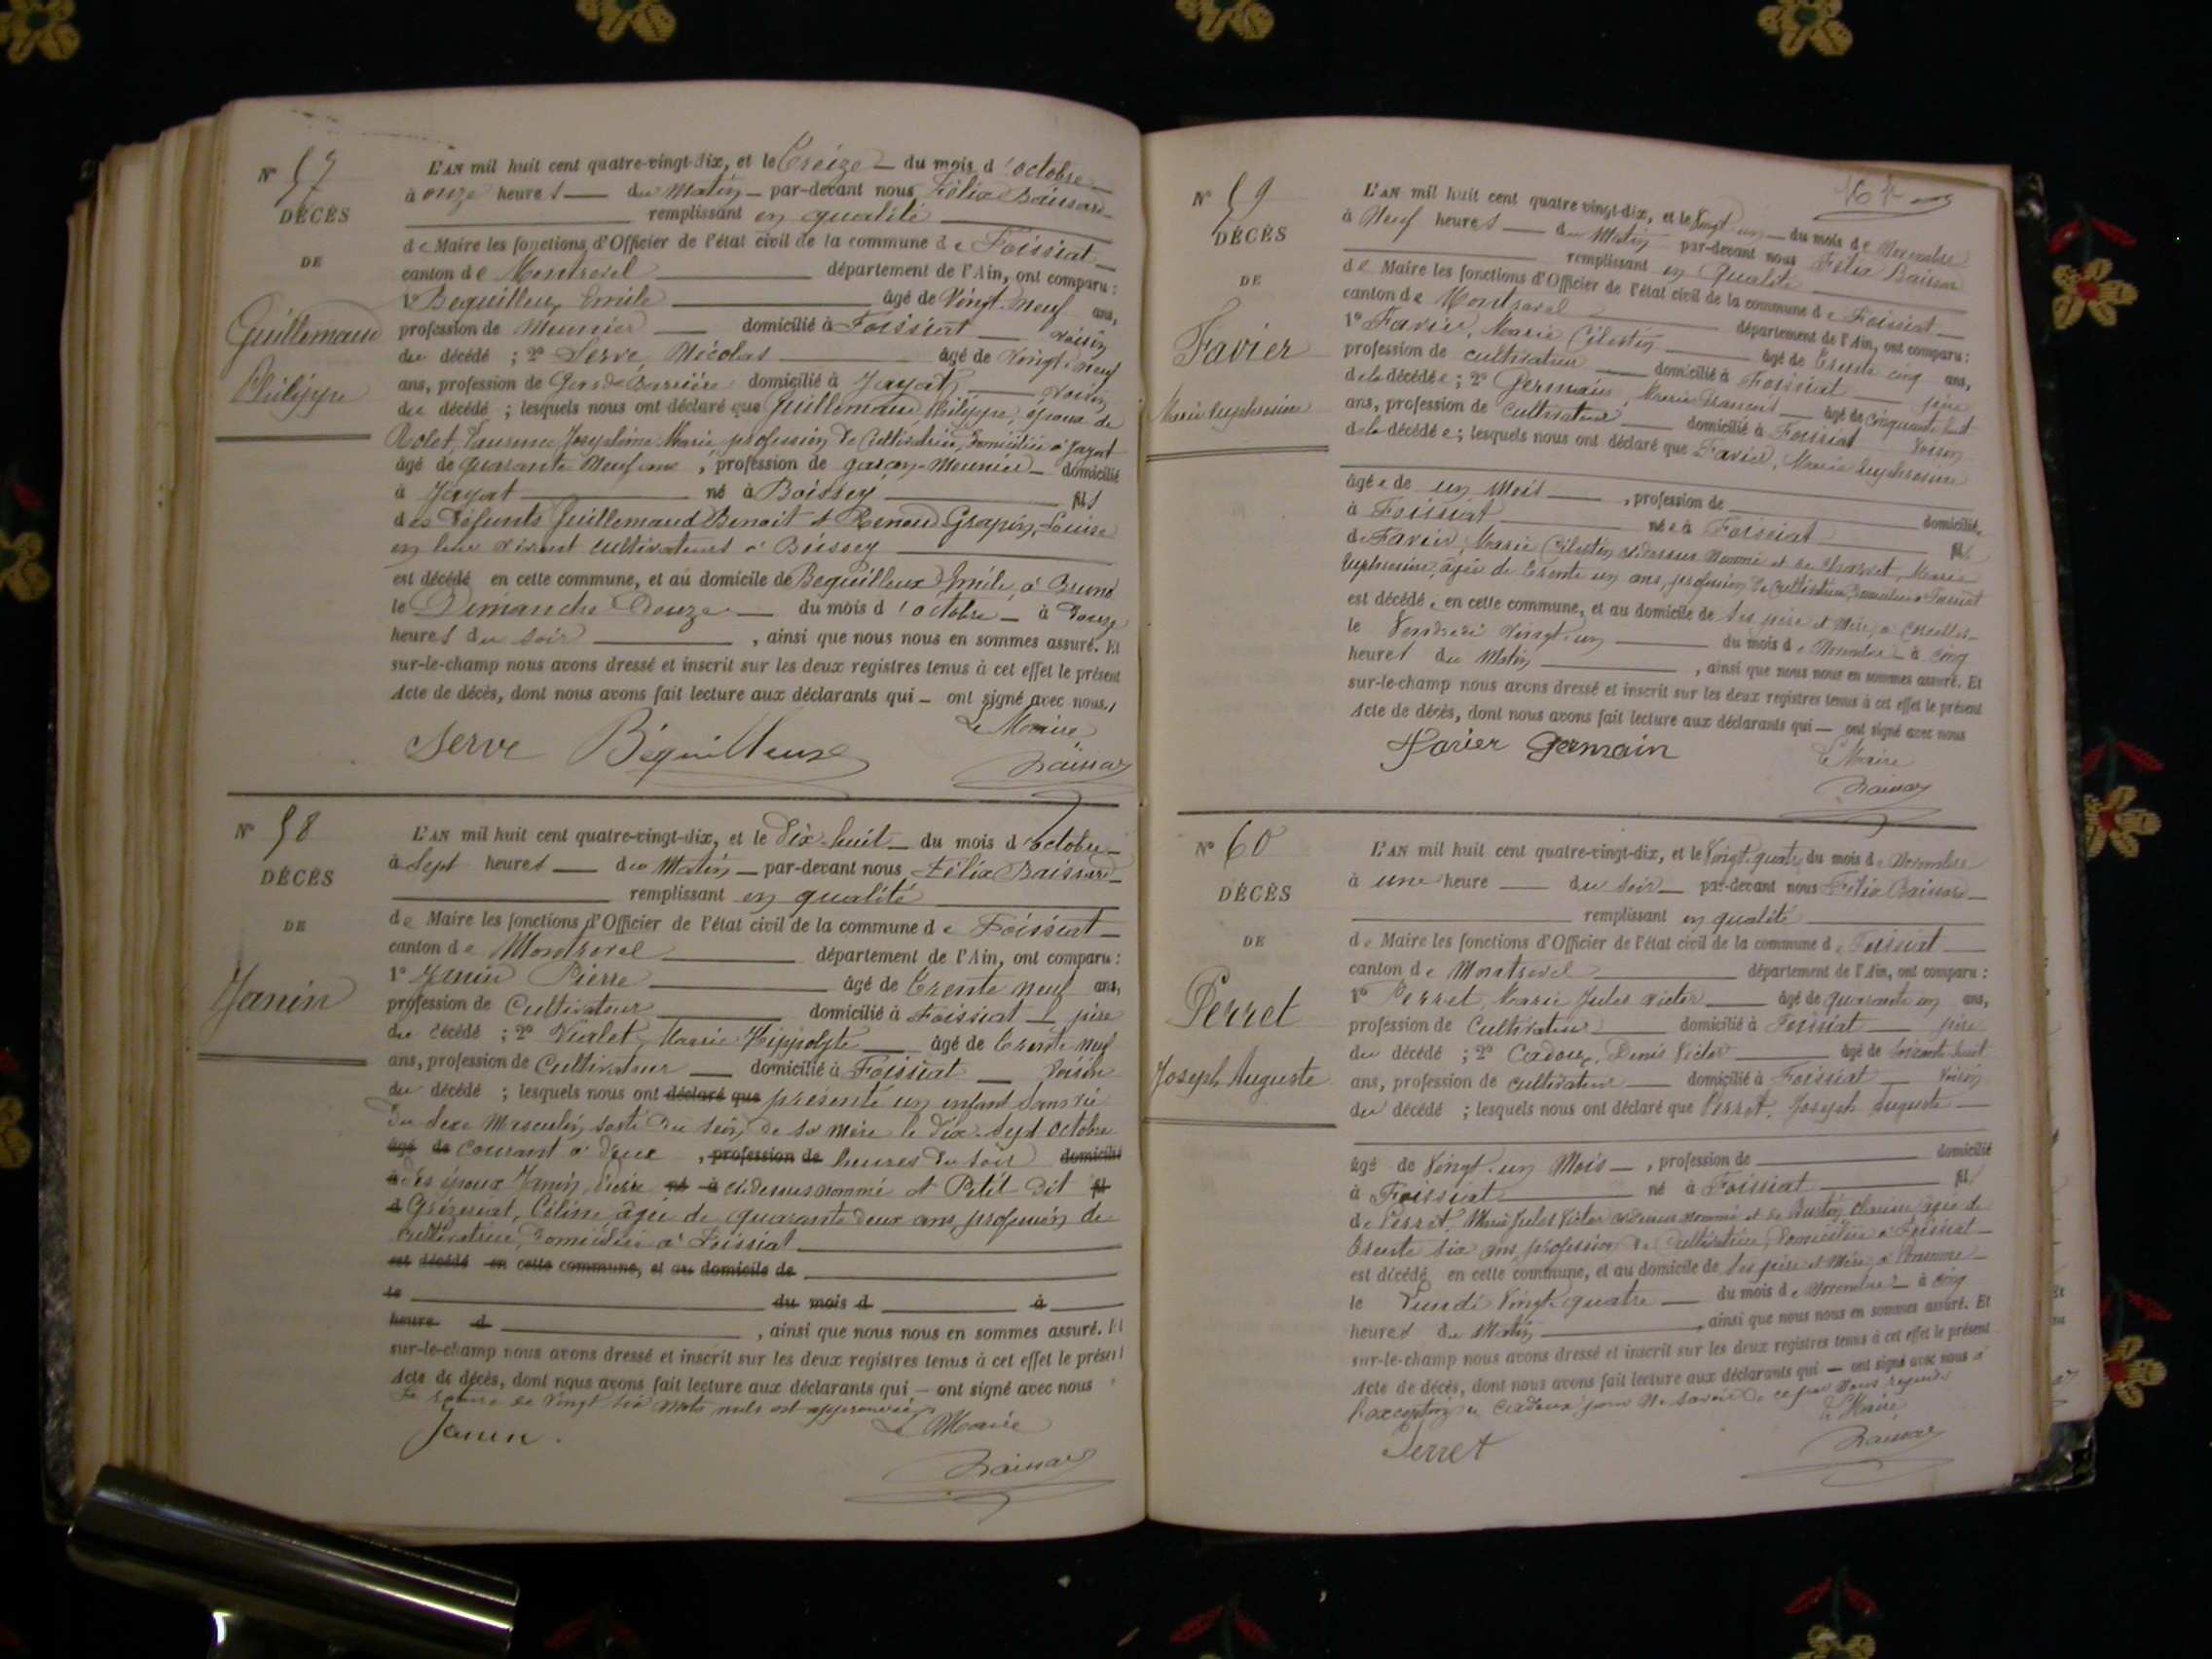 N° 57
DÉCÈS
DE
Guillemaud
Philippe
L'AN mil huit cent quatre-vingt-dix, et le Treize du mois d'octobre
à onze heures du Matin par-devant nous Félix Baissard
remplissant en qualité
de Maire les fonctions d'Officier de l'état civil de la commune de Foissiat
canton de Montrevel département de l'Ain, ont comparu :
1° Bequilleux Emile âgé de Vingt-neuf ans,
profession de Meunier domicilié à Foissiat voisin
du décédé ; 2° Serve Nicolas âgé de Vingt-neuf
ans, profession de Garde Barrière domicilié à Jayat voisin
du décédé ; lesquels nous ont déclaré que Guillemaud Philippe, époux de
Rolet, Laurence Joséphine Marie, profession de Cultivatrice, domiciliée à Jayat
âgé de quarante Neuf ans, profession de garçon-Meunier domicilié
à Jayat né à Boissey fils
des défunts Guillemaud Benoit et Renoud Grapin, Louise
en leur vivant cultivateurs à Boissey
est décédé en cette commune, et au domicile de Bequilleux Emile, à Brune
le Dimanche Douze du mois d'octobre à Douze
heures du soir, ainsi que nous nous en sommes assuré. Et
sur-le-champ nous avons dressé et inscrit sur les deux registres tenus à cet effet le présent
Acte de décès, dont nous avons fait lecture aux déclarants qui ont signé avec nous.
Le Maire
Serve Béquilleux Baissard
N° 58
DÉCÈS
DE
Janin
L'AN mil huit cent quatre-vingt-dix, et le Dix-huit du mois d'octobre
à Sept heures du Matin par-devant nous Félix Baissard
remplissant en qualité
de Maire les fonctions d'Officier de l'état civil de la commune de Foissiat
canton de Montrevel département de l'Ain, ont comparu :
1° Janin Pierre âgé de Trente neuf ans,
profession de Cultivateur domicilié à Foissiat père
du décédé ; 2° Vialet, Marie Hippolyte âgé de Trente neuf
ans, profession de Cultivateur domicilié à Foissiat Voisin
du décédé ; lesquels nous ont déclaré que présenté un enfant sans vie
du Sexe Masculin, sorti du sein de sa mère le Dix-sept octobre
âgé de courant à deux, profession de heures du soir domicilié
à des époux Janin Pierre né à ci-dessus nommé et Petit dit fil
d Gréziriat, Céline âgée de quarante deux ans, profession de
cultivatrice, domiciliée à Foissiat
est décédé en cette commune, et au domicile de
le du mois d à
heure d, ainsi que nous nous en sommes assuré. Et
sur-le-champ nous avons dressé et inscrit sur les deux registres tenus à cet effet le présent
Acte de décès, dont nous avons fait lecture aux déclarants qui ont signé avec nous
La rature de Vingt six mots nuls est approuvée
Le Maire
Janin.
Baissard
N° 59
DÉCÈS
DE
Favier
Marie Euphrosine
L'AN mil huit cent quatre-vingt-dix, et le Vingt un du mois de Novembre
à Neuf heures du Matin par-devant nous Félix Baissard
remplissant en qualité
de Maire les fonctions d'Officier de l'état civil de la commune de Foissiat
canton de Montrevel département de l'Ain, ont comparu :
1° Favier, Marie Célestin âgé de Trente cinq ans,
profession de cultivateur domicilié à Foissiat père
de la décédée ; 2° Germain, Marie François âgé de Cinquante huit
ans, profession de Cultivateur domicilié à Foissiat Voisin
de la décédée ; lesquels nous ont déclaré que Favier, Marie Euphrosine
âgée de un Mois, profession de domicilié
à Foissiat née à Foissiat fil
de Favier, Marie Célestin ci-dessus nommé et de Charvet, Marie
Euphrosine, âgée de Trente un ans, profession de Cultivatrice, domiciliée à Foissiat
est décédée en cette commune, et au domicile de ses père et Mère, à
le Vendredi Vingt-un du mois de Novembre à cinq
heures du Matin, ainsi que nous nous en sommes assuré. Et
sur-le-champ nous avons dressé et inscrit sur les deux registres tenus à cet effet le présent
Acte de décès, dont nous avons fait lecture aux déclarants qui ont signé avec nous
Favier Germain
Le Maire
Baissard
N° 60
DÉCÈS
DE
Perret
Joseph Auguste
L'AN mil huit cent quatre-vingt-dix, et le Vingt-quatre du mois de Novembre
à une heure du soir par-devant nous Félix Baissard
remplissant en qualité
de Maire les fonctions d'Officier de l'état civil de la commune de Foissiat
canton de Montrevel département de l'Ain, ont comparu :
1° Perret, Marie Jules Victor âgé de quarante un ans,
profession de Cultivateur domicilié à Foissiat père
du décédé ; 2° Cadoux, Denis Victor âgé de soixante huit
ans, profession de cultivateur domicilié à Foissiat Voisin
du décédé ; lesquels nous ont déclaré que Perret, Joseph Auguste
âgé de Vingt-un Mois, profession de domicilié
à Foissiat né à Foissiat fil
de Perret, Marie Jules Victor ci-dessus nommé et de Burtin Clarisse âgée de
Trente six ans, profession de Cultivatrice, domiciliée à Foissiat
est décédé en cette commune, et au domicile de ses père et Mère, à
le Lundi Vingt-quatre du mois de Novembre à cinq
heures du Matin, ainsi que nous nous en sommes assuré. Et
sur-le-champ nous avons dressé et inscrit sur les deux registres tenus à cet effet le présent
Acte de décès, dont nous avons fait lecture aux déclarants qui ont signé avec nous à
l'exception de Cadoux pour ne savoir de ce par nous requis
Le Maire
Perret
Baissard